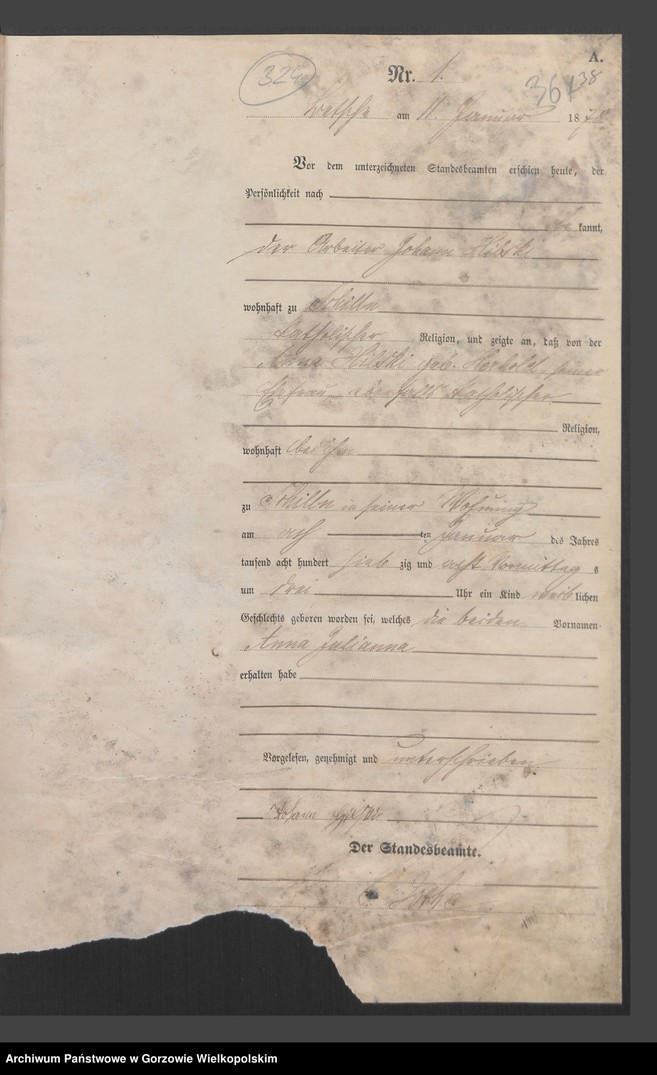 A.
324
Nr. 1.
361 38
Betsche am 11. Januar 1878
Vor dem unterzeichneten Standesbeamten erschien heute, der
Persönlichkeit nach
be kannt,
der Arbeiter Johann
wohnhaft zu Schilln
katholischer Religion, und zeigte an, daß von der
Anna geb. seiner
Ehefrau, ebenfalls katholischer
Religion,
wohnhaft bei ihm
zu Schilln in seiner Wohnung
am ach ten Januar des Jahres
tausend acht hundert sieb zig und acht Vormittag s
um drei Uhr ein Kind weib lichen
Geschlechts geboren worden sei, welches die beiden Vornamen
Anna Julianna
erhalten habe
Vorgelesen, genehmigt und unterschrieben
Johann
Der Standesbeamte.